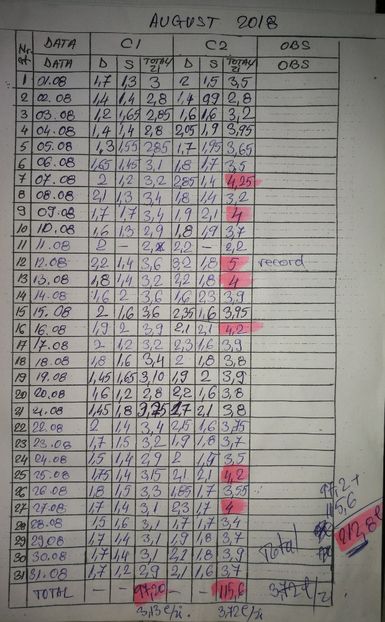 AUGUST 2018
Nr. crt DATA C1 C2 OBS
DATA D S TOTAL Z1 D S TOTAL Z1 OBS
1 01.08 1,7 1,3 3 2 1,5 3,5
2 02.08 1,4 1,4 2,8 1,4 99 2,8
3 03.08 1,2 1,65 2,85 1,6 1,6 3,2
4 04.08 1,4 1,4 2,8 2,05 1,9 3,95
5 05.08 1,3 1,55 2,85 1,7 1,95 3,65
6 06.08 1,65 1,45 3,1 1,8 1,7 3,5
7 07.08 2 1,2 3,2 2,85 1,4 4,25
8 08.08 2,1 1,3 3,4 1,8 1,4 3,2
9 09.08 1,7 1,7 3,4 1,9 2,1 4
10 10.08 1,6 1,3 2,9 1,8 1,9 3,7
11 11.08 2 - 2,2 - 2,2
12 12.08 2,2 1,4 3,6 3,2 1,8 5 record
13 13.08 1,8 1,4 3,2 2,2 1,8 4
14 14.08 1,6 2 3,6 1,6 2,3 3,9
15 15.08 2 1,6 3,6 2,35 1,6 3,95
16 16.08 1,9 2 3,9 2,1 2,1 4,2
17 17.08 2 1,2 3,2 2,3 1,6 3,9
18 18.08 1,8 1,6 3,4 2 1,8 3,8
19 19.08 1,45 1,65 3,10 1,9 2 3,9
20 20.08 1,6 1,2 2,8 2,2 1,6 3,8
21 21.08 1,45 1,8 1,7 2,1 3,8
22 22.08 2 1,4 3,4 2,15 1,6 3,75
23 23.08 1,7 1,5 3,2 1,9 1,8 3,7
24 24.08 1,5 1,4 2,9 2 1,5 3,5
25 25.08 1,75 1,4 3,15 2,1 2,1 4,2
26 26.08 1,8 1,5 3,3 1,85 1,7 3,55
27 27.08 1,7 1,4 3,1 2,3 1,7 4
28 28.08 1,5 1,6 3,1 1,7 1,7 3,4
29 29.08 1,7 1,4 3,1 1,9 1,8 3,7
30 30.08 1,7 1,4 3,1 2,1 1,8 3,9
31 31.08 1,7 1,2 2,9 2,1 1,6 3,7
TOTAL - - 97,20 - - 115,6
3,13 l/zi 3,72 l/zi
97,2 +
115,6
212,8 l
Total
3,72 l/z